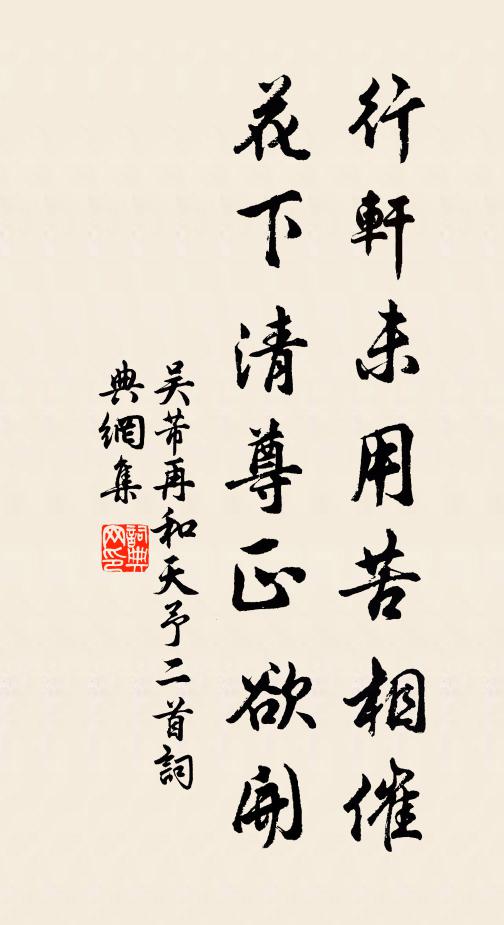 行軒未用苦相催
花下清尊正欲開
吴芾再和天予二首詞
典網集
詞典
网印